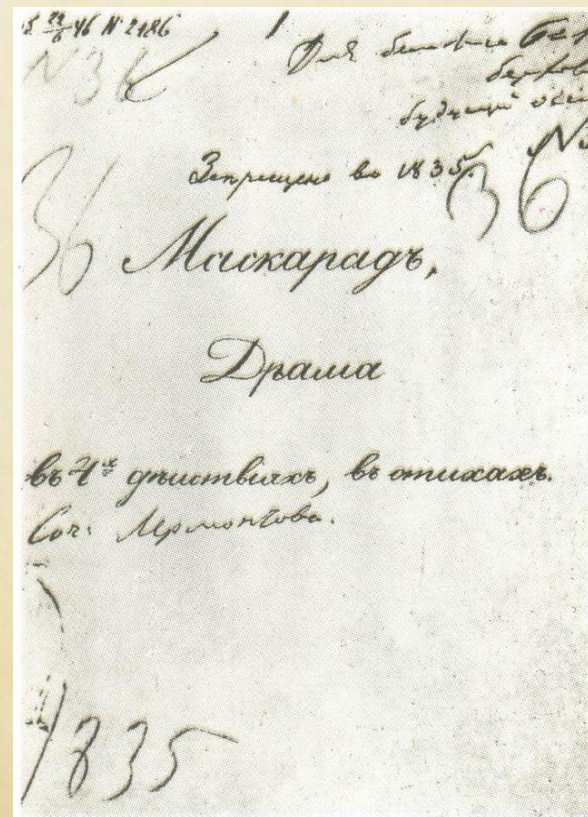 46 № 2186
№ 36
Для
Запрещено въ 1835
36
36
Маскарадъ,
Драма
въ 4х дѣйствіяхъ, въ стихахъ.
Соч. Лермонтова.
1835